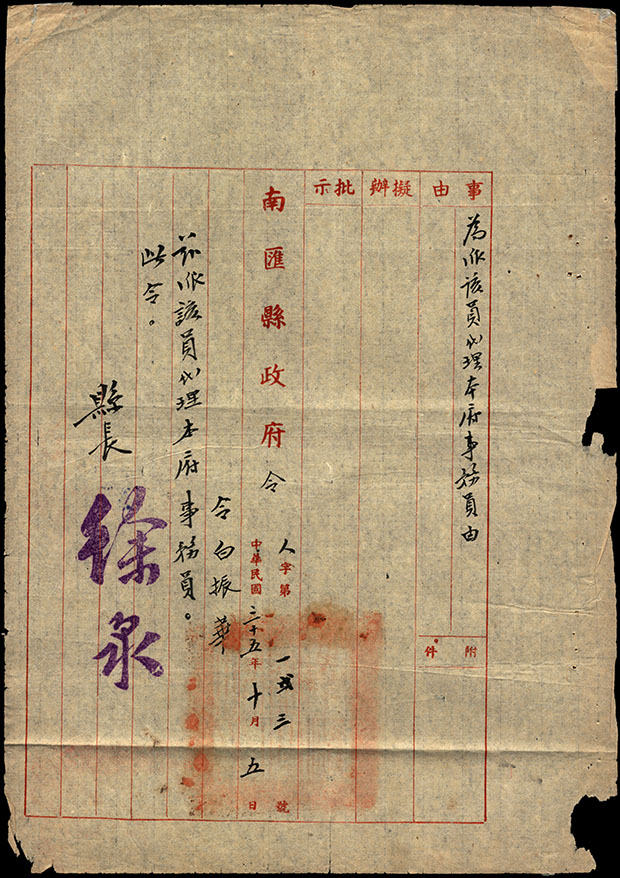 事由
為派該員代理本府事務員由
附件
擬辦
批示
南匯縣政府令
人字第一弍三號
中華民國三十五年十月五日
令白振華
茲派該員代理本府事務員。
此令。
縣長
徐泉